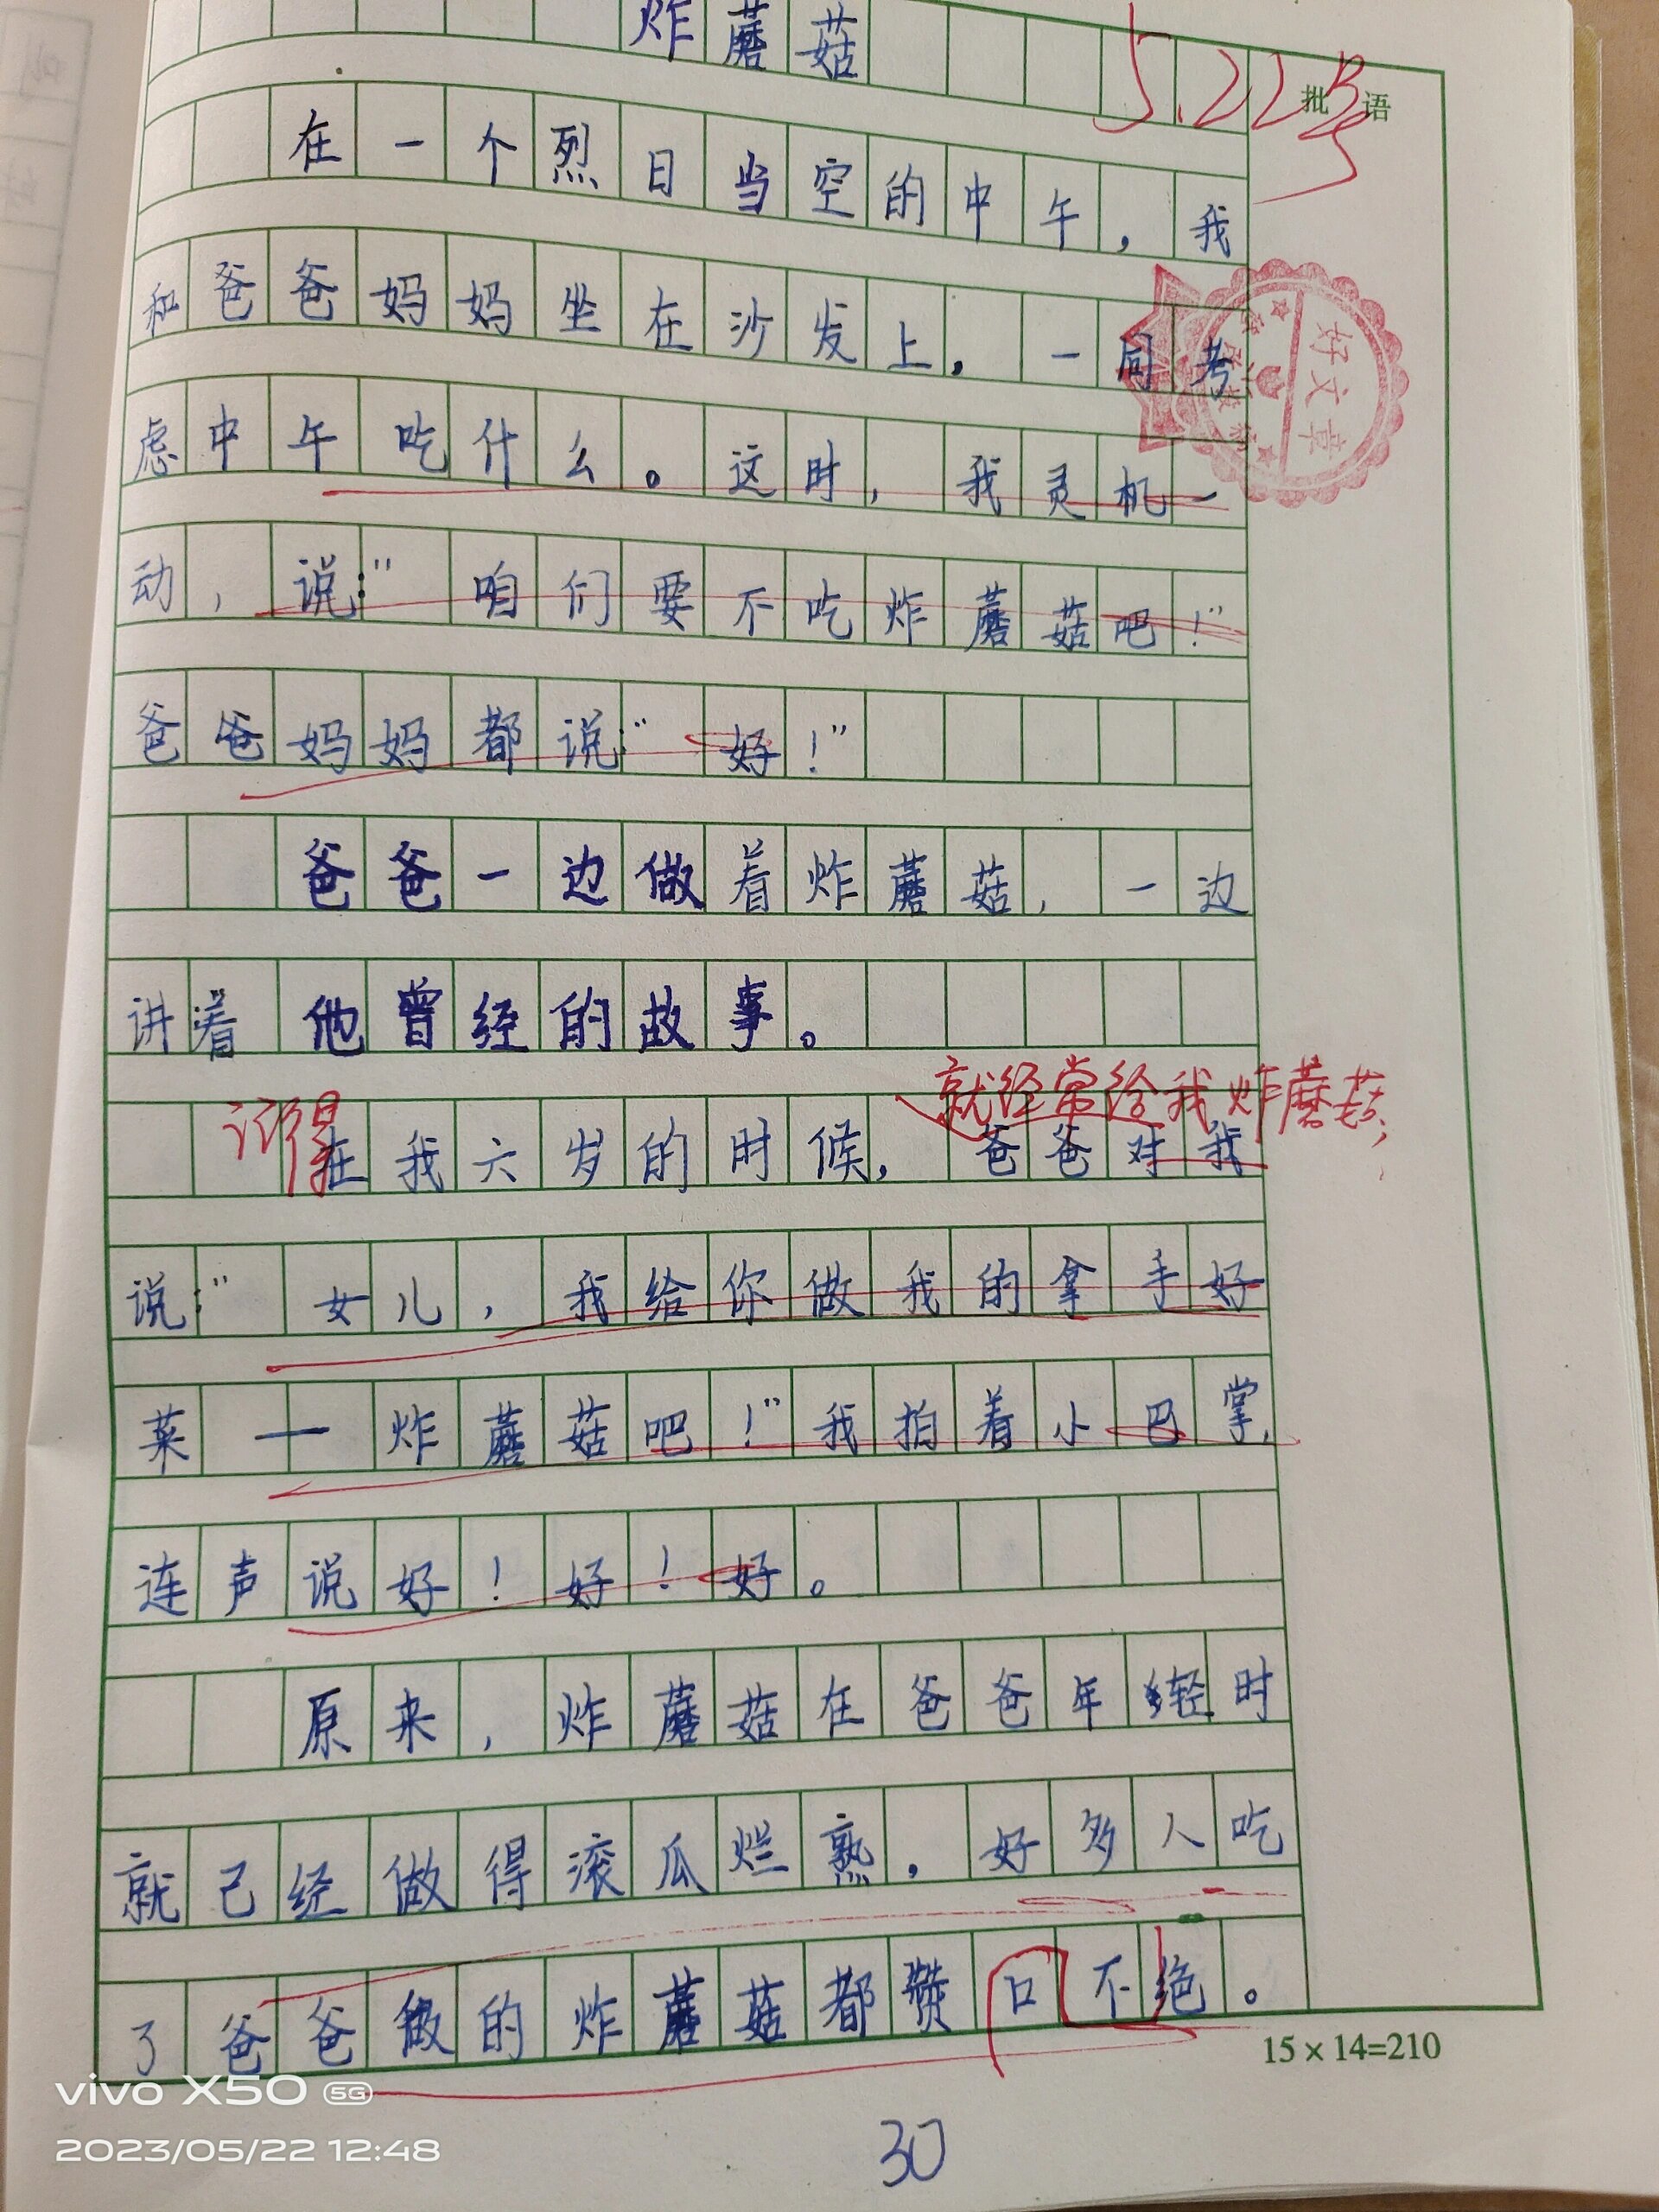 炸蘑菇
5.22
批语
在一个烈日当空的中午，我
和爸爸妈妈坐在沙发上，一同考
好文章
虑中午吃什么。这时，我灵机一
动，说：“咱们要不吃炸蘑菇吧！”
爸爸妈妈都说：“好！”
爸爸一边做着炸蘑菇，一边
讲着他曾经的故事。
就经常给我炸蘑菇，
记得
在我六岁的时候，爸爸对我
说：“女儿，我给你做我的拿手好
菜——炸蘑菇吧！”我拍着小巴掌，
连声说好！好！好。
原来，炸蘑菇在爸爸年轻时
就已经做得滚瓜烂熟，好多人吃
了爸爸做的炸蘑菇都赞口不绝。
15×14=210
30
vivo X50 5G
2023/05/22 12:48